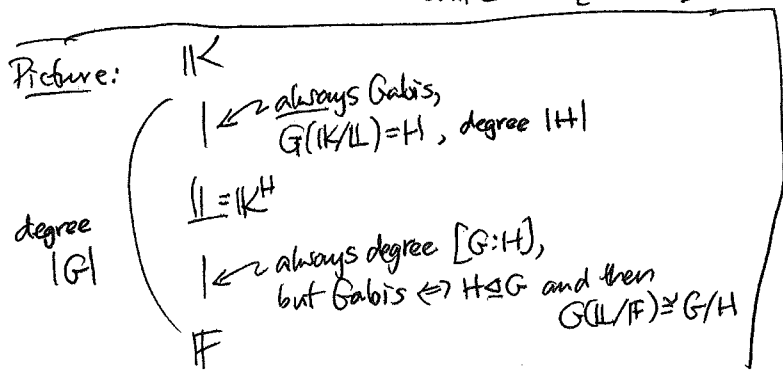 Picture: 𝕂
always Galois,
G(𝕂/𝕃)=H, degree |H|
𝕃=𝕂^H
degree |G|
always degree [G:H],
but Galois ⟺ H⊴G and then
G(𝕃/𝔽)≅G/H
𝔽